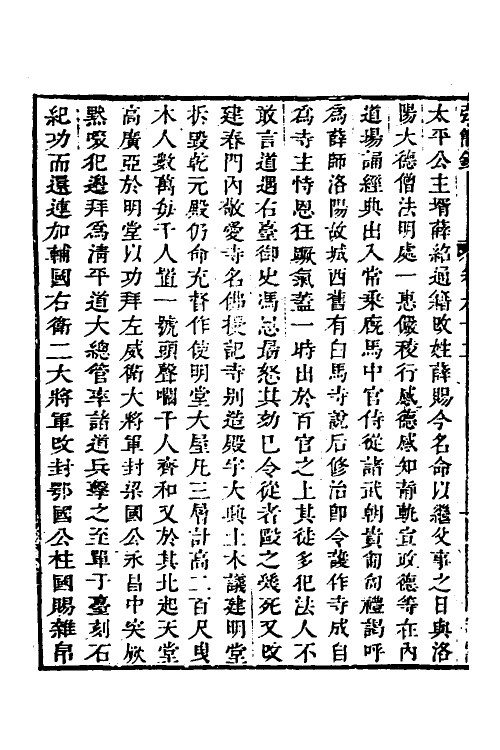 太平公主壻薛紹通籍改姓薛賜今名命以繼父事之日與洛
陽大德僧法明處一惠儼稜行感德感知靜軌宣政德等在內
道場誦經典出入常乘廐馬中官侍從諸武朝貴匍匐禮謁呼
為薛師洛陽故城西舊有白馬寺說后修治即令護作寺成自
為寺主恃恩狂蹶氣蓋一時出於百官之上其徒多犯法人不
敢言道遇右臺御史馮思勗怒其劾已令從者毆之幾死又改
建春門內敬愛寺名佛授記寺別造殿宇大興土木議建明堂
拆毀乾元殿仍命充督作使明堂大屋凡三層計高二百尺曳
木人數萬每千人置一號頭聲嘓千人齊和又於其北起天堂
高廣亞於明堂以功拜左威衛大將軍封梁國公永昌中突厥
默啜犯邊拜為清平道大總管率諸道兵擊之至單于臺刻石
紀功而還連加輔國右衛二大將軍改封鄂國公柱國賜雜帛